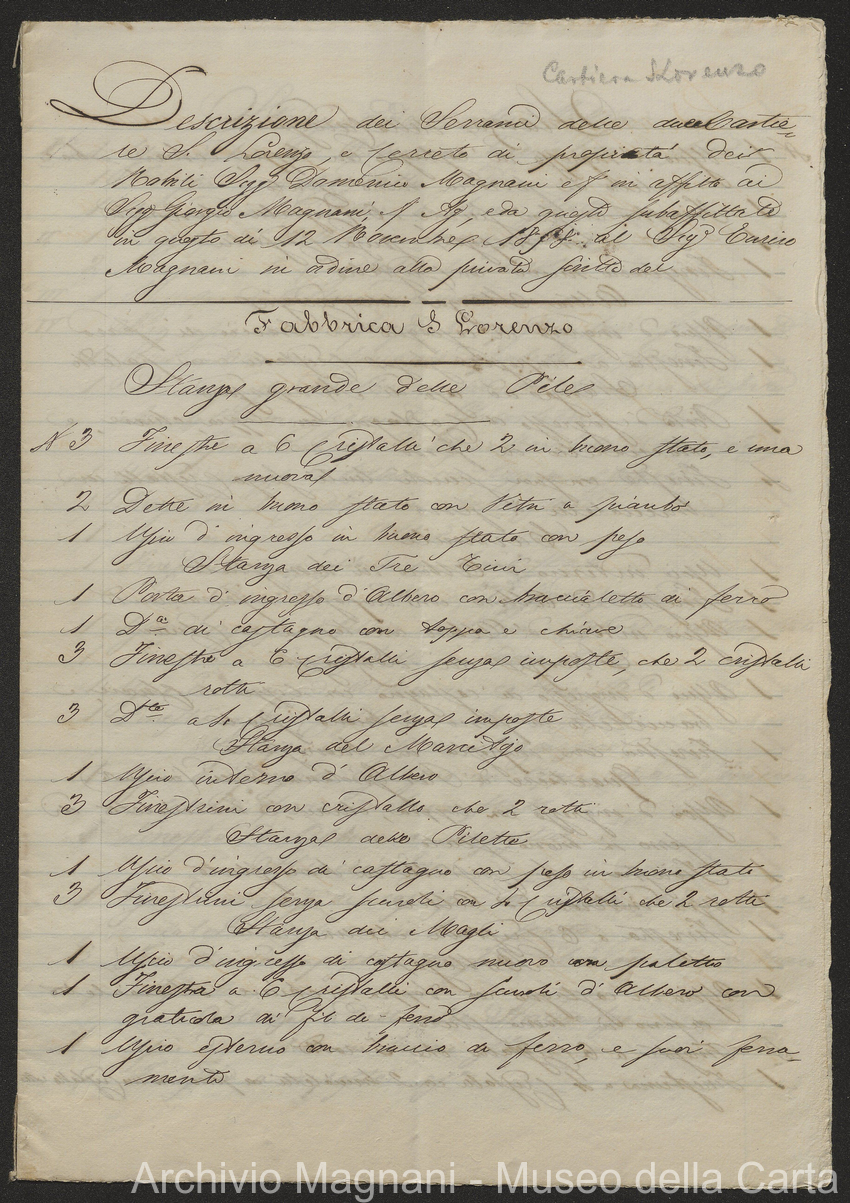 Cartiera S Lorenzo
Descrizione dei Serrami delle due Cartie=
re S. Lorenzo, e Cerreto di proprietà dei
Nobili Sigg Domenico Magnani e f in affitto ai
Sigg Giorgio Magnani, f Ag, e da questi subaffittate
in questo dì 12 Novembre al Sigr Enrico
Magnani in ordine alla privata scritta del
Fabbrica S Lorenzo
Stanza grande delle Pile
N 3 Finestre a 6 Cristalli che 2 in buono stato, e una
nuova
2 Dette in buono stato con Vetri a piombo
1 Uscio d'ingresso in buono stato con peso
Stanza dei Tre Tini
1 Porta d'ingresso d'Albero con braccialetto di ferro
1 Da di castagno con toppa e chiave
3 Finestre a 6 cristalli senza imposte, che 2 cristalli
rotti
3 Dte a 4 Cristalli senza imposte
Stanza del
1 Uscio interno d'Albero
3 Finestrini con cristallo che 2 rotti
Stanza delle Pilette
1 Uscio d'ingresso di castagno con peso in buono stato
3 Finestrini senza scuroli con 4 Cristalli che 2 rotti
Stanza dei Magli
1 Uscio d'ingresso di castagno nuovo con paletto
1 Finestra a 6 cristalli con scuroli d'Albero con
graticola di fil di ferro
1 Uscio esterno con braccio di ferro, e suoi ferra=
menti
Archivio Magnani - Museo della Carta